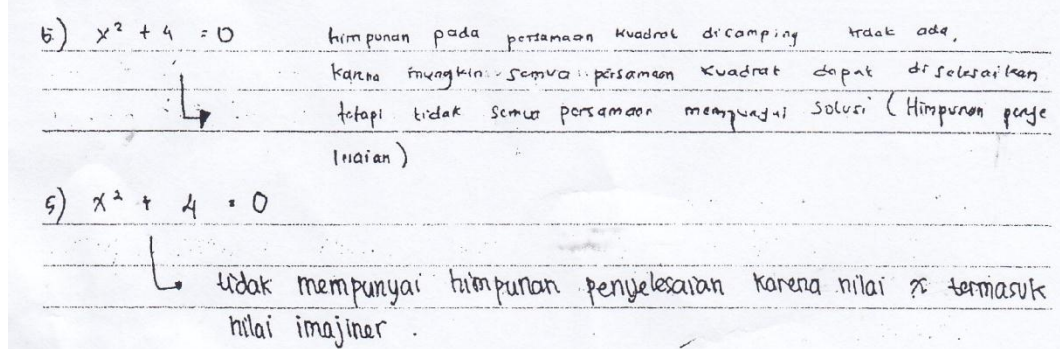 5.) x² + 4 = 0 himpunan pada persamaan kuadrat disamping tidak ada,
karna mungkin semua persamaan kuadrat dapat diselesaikan
tetapi tidak semua persamaan mempunyai solusi (Himpunan penye
lesaian)
5) x² + 4 = 0
tidak mempunyai himpunan penyelesaian karena nilai x termasuk
nilai imajiner .